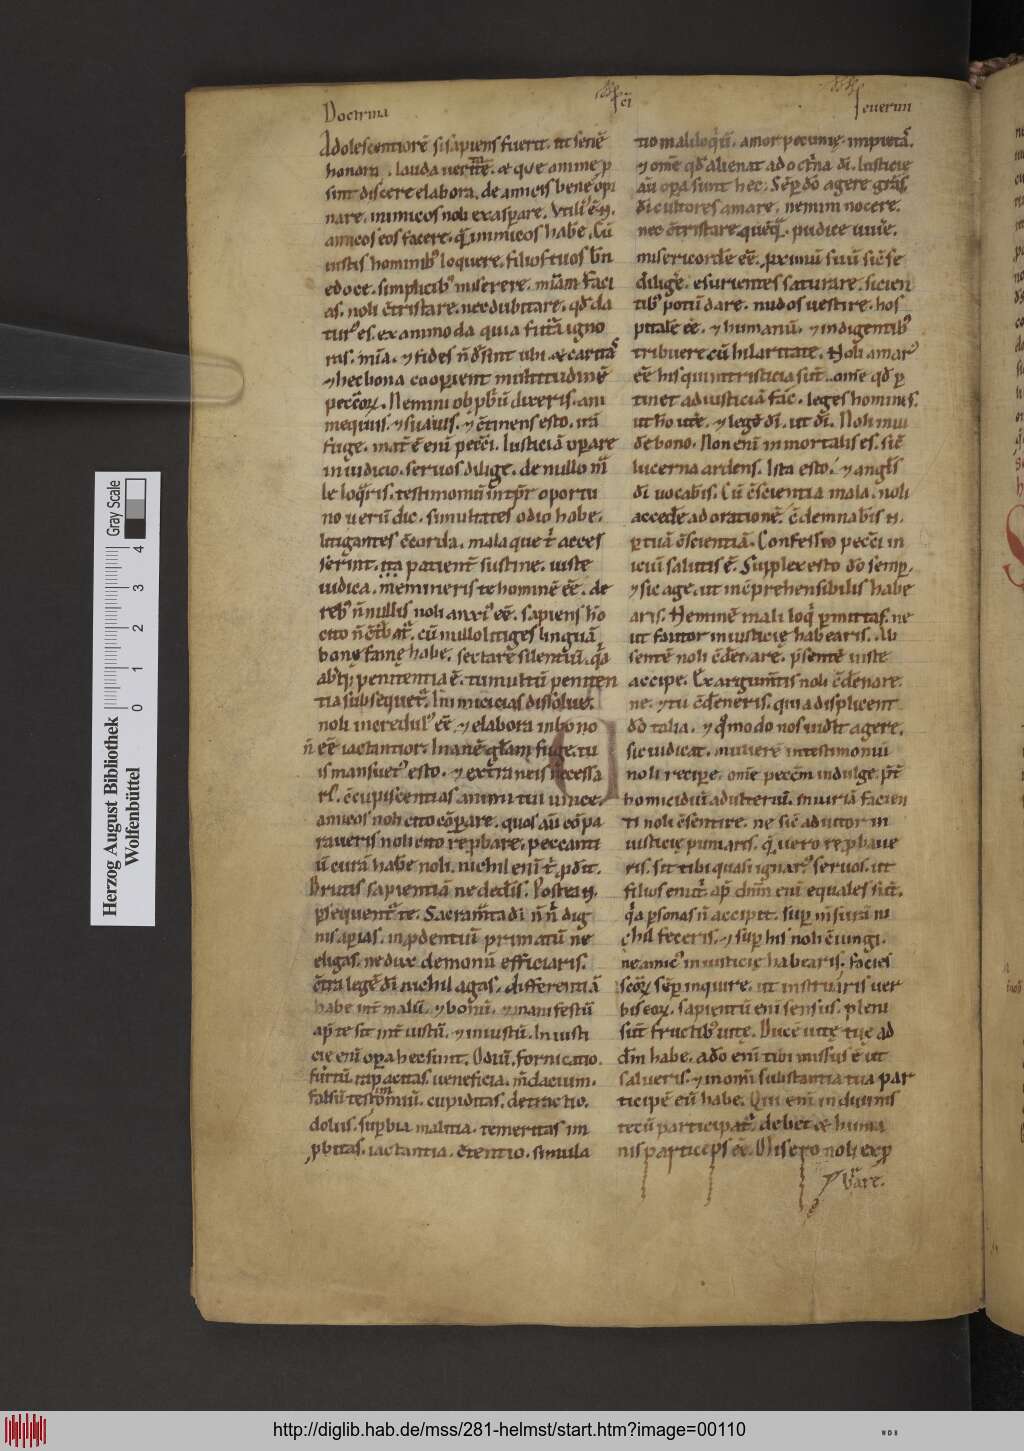 Doctrina sc̄i seuerini
Adolescentiorē si sapiens fuerit. ut senē
honora. lauda ueritatē. & que anime p
sint discere elabora. de amicis bene opi
nare. inimicos noli exasꝑare. Utili' ē n.
amicos eos facere. q̄ inimicos habē. Cū
iustis hominib' loquere. filios tuos bn̄
edoce. simplicib' miserere. miām faci
as. noli c̄tristare. nec dubitare. qd̄ da
tur' es. ex animo da quia
ras. mīa. & fides ñ ubi. & caritas
& hec bona cooꝑient multitudinē
pecc̄oꝝ. Nemini dixeris. ani
mequus. & suauis. & c̄tinens esto. irā
fuge. mat̄ ē enī pecc̄i. Iusticiā oꝑare
in iudicio. seruos dilige. de nullo m̄
le loq̄ris. testimoniū oportu
no uerū dic. simultates odio habe.
litigantes c̄corda. mala que t' acces
serint. ita patient̄ sustine. iuste
iudica. memineris te hominē eē. de
reb' ñ nullis noli anxi' eē. sapiens
cito ñ cū nullo litiges linguā
bonę famę habe. sectare silentiū. q̄a
penitentia ē. tumultū peniten
tia subsequet̄. Inimicicias dissolue.
noli incredul' eē. & elabora in bono
ñ eē iactantior. Inanē gl̄am fuge. tu
is mansuet' esto. & extraneis necessa
ri. c̄cupiscentias animi tui uince.
amicos noli cito cōꝑare. quos aū cōpa
raueris noli cito rep̱bare. peccanti
ū curā habē noli. nichil enī t' ꝓdit.
Brutis sapientiā ne dederis. Postea n.
ꝑsequent̄ te. Sacramīta di ñ dig
nis aꝑias. inprudentiū primatū ne
eligas. ne dux demonū efficiaris.
c̄tra legē di nichil agas. differentiā
habe int̄ malū. & bonū. & manifestū
ap̄ te sit int̄ iustū. & iniustū. Iniusti
cie enī oꝑa hec sunt. Odiū. fornicatio.
furtū. rapacitas. ueneficia. m̄dacium.
falsū testimoniū. cupiditas. detractio.
dolus. suꝑbia malitia. temeritas im
ꝓbitas. iactantia. c̄tentio. simula
tio maliloq̄ū. amor pecunię. impietas.
& omē qd̄ alienat a doct̄na di. Iusticie
aū oꝑa sunt hec. Sēꝑ dō agere gr̄as.
di cultores amare. nemini nocere.
nec c̄tristare quēq̄. pudice uiuē.
misericordē eē. ꝓximū suū sic̄ se
diligē. esurientes saturare. sicien
tib' potū dare. nudos uestire. hos
pitalē eē. & humanū. & indigentib'
tribuere cū hilaritate. Noli amar'
eē his qui in tristicia sūt. omē qd̄ ꝑ
tinet ad iusticiā fac. leges hominis
ut hō utē. & legē di. ut di. Noli
de bono. Non enī inmortalis es. sic̄
lucerna ardens. Ista esto. & angls
di uocab̄is. Cū c̄scientia mala. noli
accedē ad orationē. c̄demnab̄is n.
ꝑ tuā c̄scientiā. Confessio pecc̄i in
iciū salutis ē. Supplex esto dō semꝑ.
& sic age. ut inc̄prehensibilis habe
aris. Neminē mali loq̄ ꝑmittas. ne
ut fautor iniusticię habearis. Ab
sentē noli c̄demnare. p̄sentē iuste
accipe. Ex argum̄tis noli c̄denare.
ne. & tu c̄deneris. quia displicent
dō talia. & q̄modo nos uidit agere.
sic iudicat. muliere in testimoniū
noli recipe. omē pecc̄m indulge. p̄t
homicidiū adulteriū. iniuriā facien
ti noli c̄sentire. ne sic̄ adiutor in
iusticię puniaris. q̄ uero rep̱baue
ris. sit tibi quasi ignar' seruos. ut
filios enut̄. ap̄ dn̄m enī equales sūt.
q̄a ꝑsonas ñ accipit. suꝑ m̄surā ni
chil feceris. & suꝑ his noli c̄iungi.
ne amic' iniusticię habearis. facies
sc̄oꝝ sēꝑ inquire. ut instruaris uer
bis eoꝝ. sapientū enī sensus. pleni
sūt fructib' uitę. Ducē uitę tuę ad
dn̄m habe. a dō enī tibi missus ē ut
salueris. & in omni substantia tua par
ticipē eū habe. Qui enī in diuinis
tecū participat̄. debet & huma
nis particeps eē. Misero noli exꝓ
bare.
Herzog August Bibliothek
Wolfenbüttel
0 1 2 3 4
Gray Scale
http://diglib.hab.de/mss/281-helmst/start.htm?image=00110